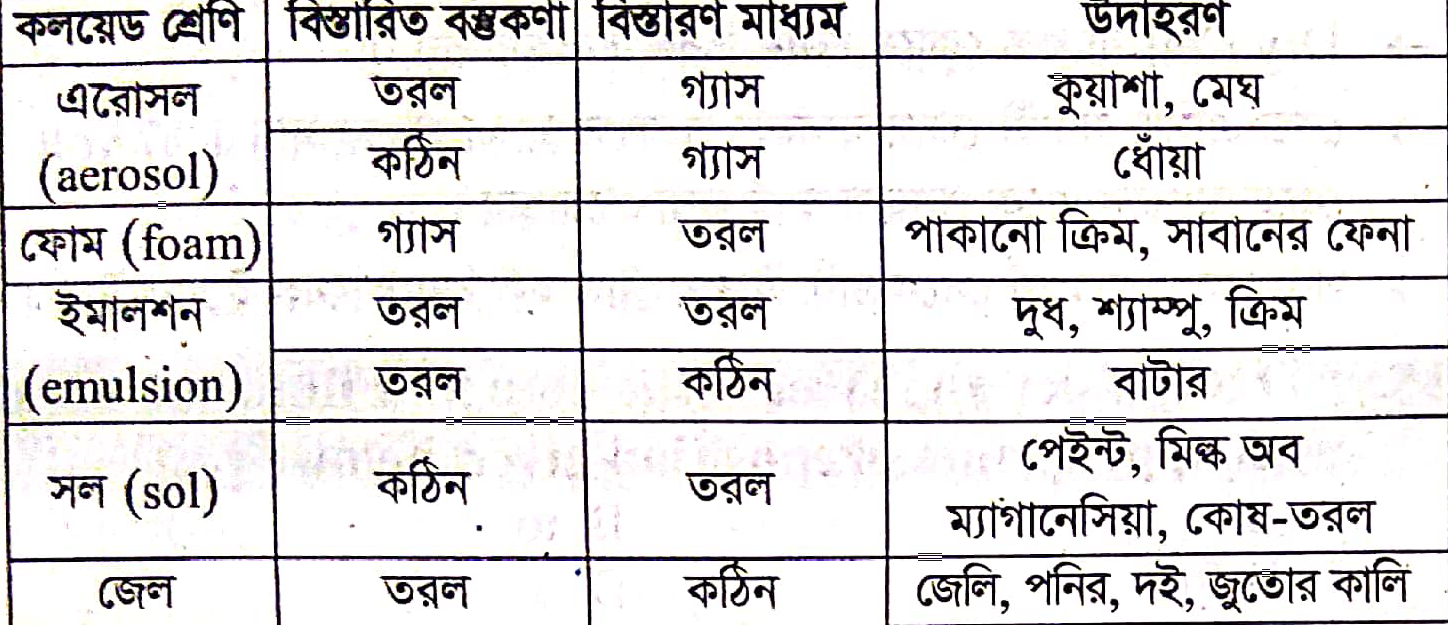 কলয়েড শ্রেণি বিস্তারিত বস্তুকণা বিস্তারণ মাধ্যম উদাহরণ
এরোসল তরল গ্যাস কুয়াশা, মেঘ
(aerosol) কঠিন গ্যাস ধোঁয়া
ফোম (foam) গ্যাস তরল পাকানো ক্রিম, সাবানের ফেনা
ইমালশন তরল তরল দুধ, শ্যাম্পু, ক্রিম
(emulsion) তরল কঠিন বাটার
সল (sol) কঠিন তরল পেইন্ট, মিল্ক অব
ম্যাগানেসিয়া, কোষ-তরল
জেল তরল কঠিন জেলি, পনির, দই, জুতোর কালি